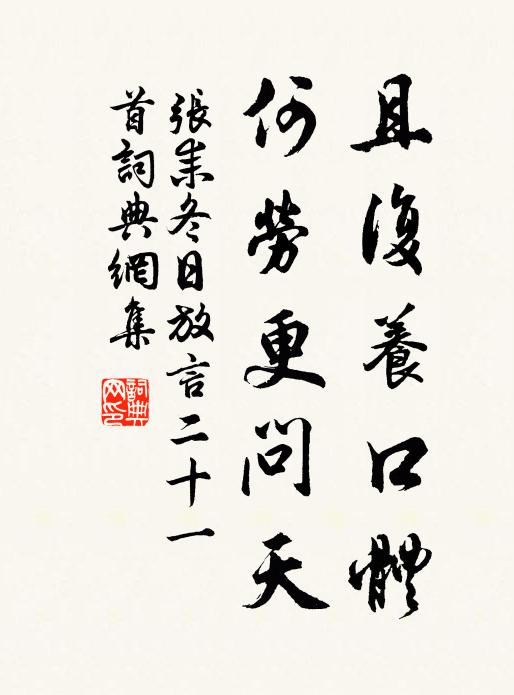 且復養口體
何勞更問天
張耒冬日放言二十一
首詞典網集
詞典
网印